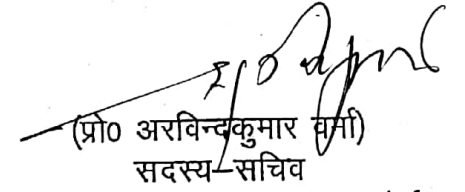 (प्रो0 अरविन्दकुमार वर्मा)
सदस्य-सचिव